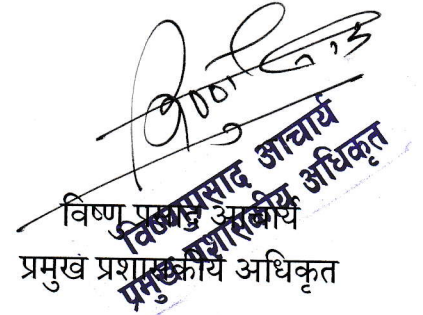 विष्णुप्रसाद आचार्य
प्रमुख प्रशासकीय अधिकृत
विष्णु प्रसाद आचार्य
प्रमुख प्रशासकीय अधिकृत